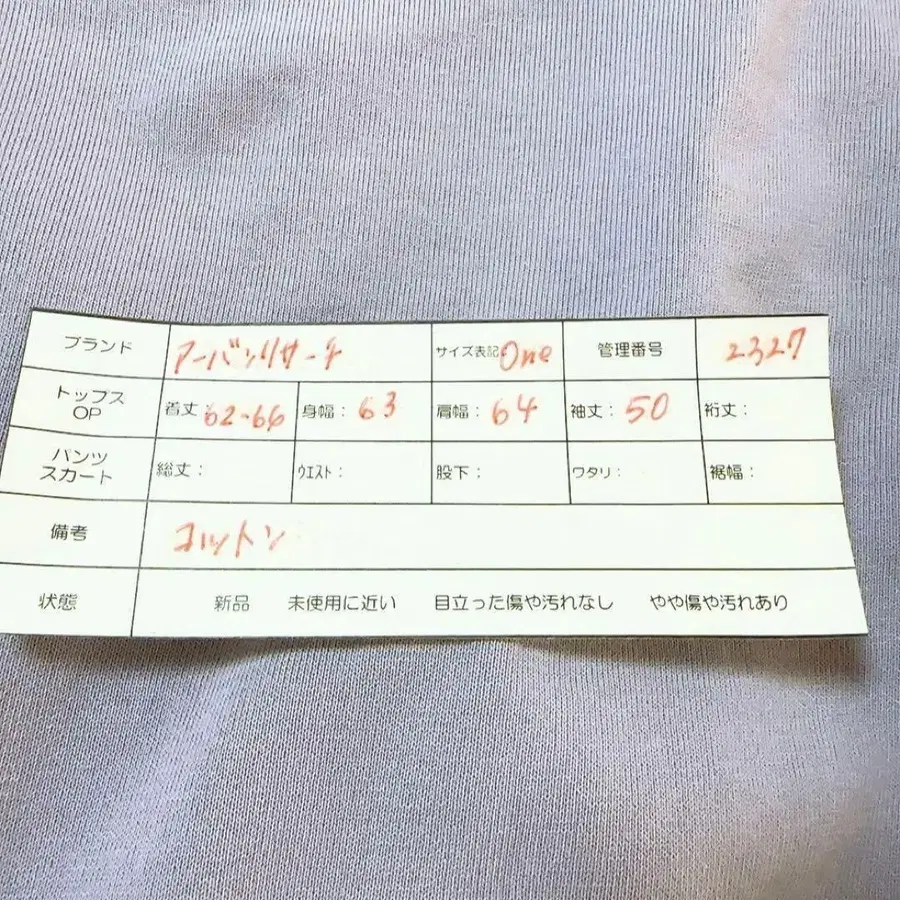 ブランド アーバンリサーチ サイズ表記 One 管理番号 2327
トップス
OP 着丈:62-66 身幅:63 肩幅:64 袖丈:50 裄丈:
パンツ
スカート 総丈: ウエスト: 股下: ワタリ: 裾幅:
備考 コットン
状態 新品 未使用に近い 目立った傷や汚れなし やや傷や汚れあり